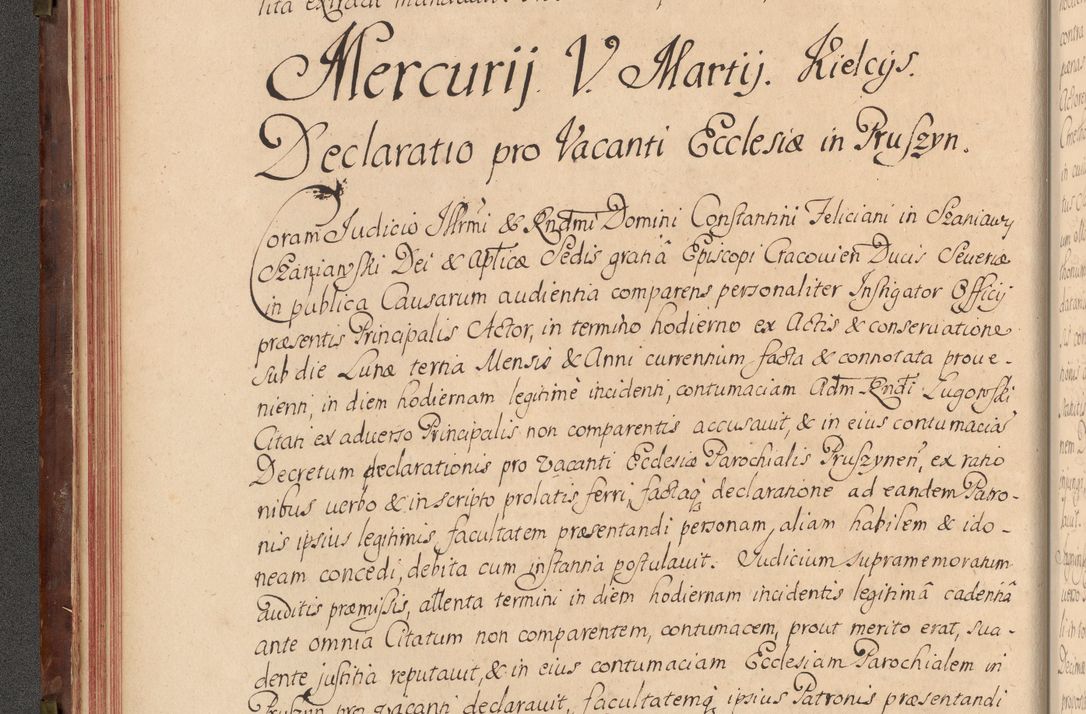 Mercurij. V. Martij. Kielcijs.
Declaratio pro Vacanti Ecclesiæ in Pruszyn.
Coram Judicio Illrmi & Rndmi Domini Constantini Feliciani in Szaniawy
Szaniawski Dei & Aplicæ Sedis gratiâ Episcopi Cracovien Ducis Severiæ
in publica Causarum audientia comparens personaliter Instigator Officij
præsentis Principalis Actor, in termino hodierno ex Actis & conservatione
sub die Lunæ tertia Mensis & Anni currentium facta & connotata prove-
nienti, in diem hodiernam legitimè incidenti, contumaciam Adm Rndi Lugowski
Citati ex adverso Principalis non comparentis accusavit, & in eius contumaciã
Decretum declarationis pro vacanti Ecclesiæ Parochialis Pruszynen, ex ratio
nibus verbo & in scripto prolatis ferri, factaq declaratione ad eandem Patro-
nis ipsius legitimis, facultatem præsentandi personam, aliam habilem & ido-
neam concedi, debita cum instantia postulavit. Judicium supramemoratum
auditis præmissis, attenta termini in diem hodiernam incidentis legitimâ cadentiâ
ante omnia Citatum non comparentem, contumacem, prout merito erat, sua-
dente justitia reputavit, & in eius contumaciam Ecclesiam Parochialem in
Pruszyn pro vacanti declaravit, facultatemq ipsius Patronis præsentandi